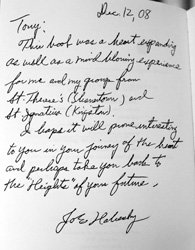 Dec 12, 08
Tony:
This book was a heart expanding
as well as a mind blowing experience
for me and my groups from
St. Therese's (Chinatown) and
St. Ignatius (Kingston).
I hope it will prove interesting
to you in your journey of the heart
and perhaps take you back to
the "Heights" of your future,
Joe